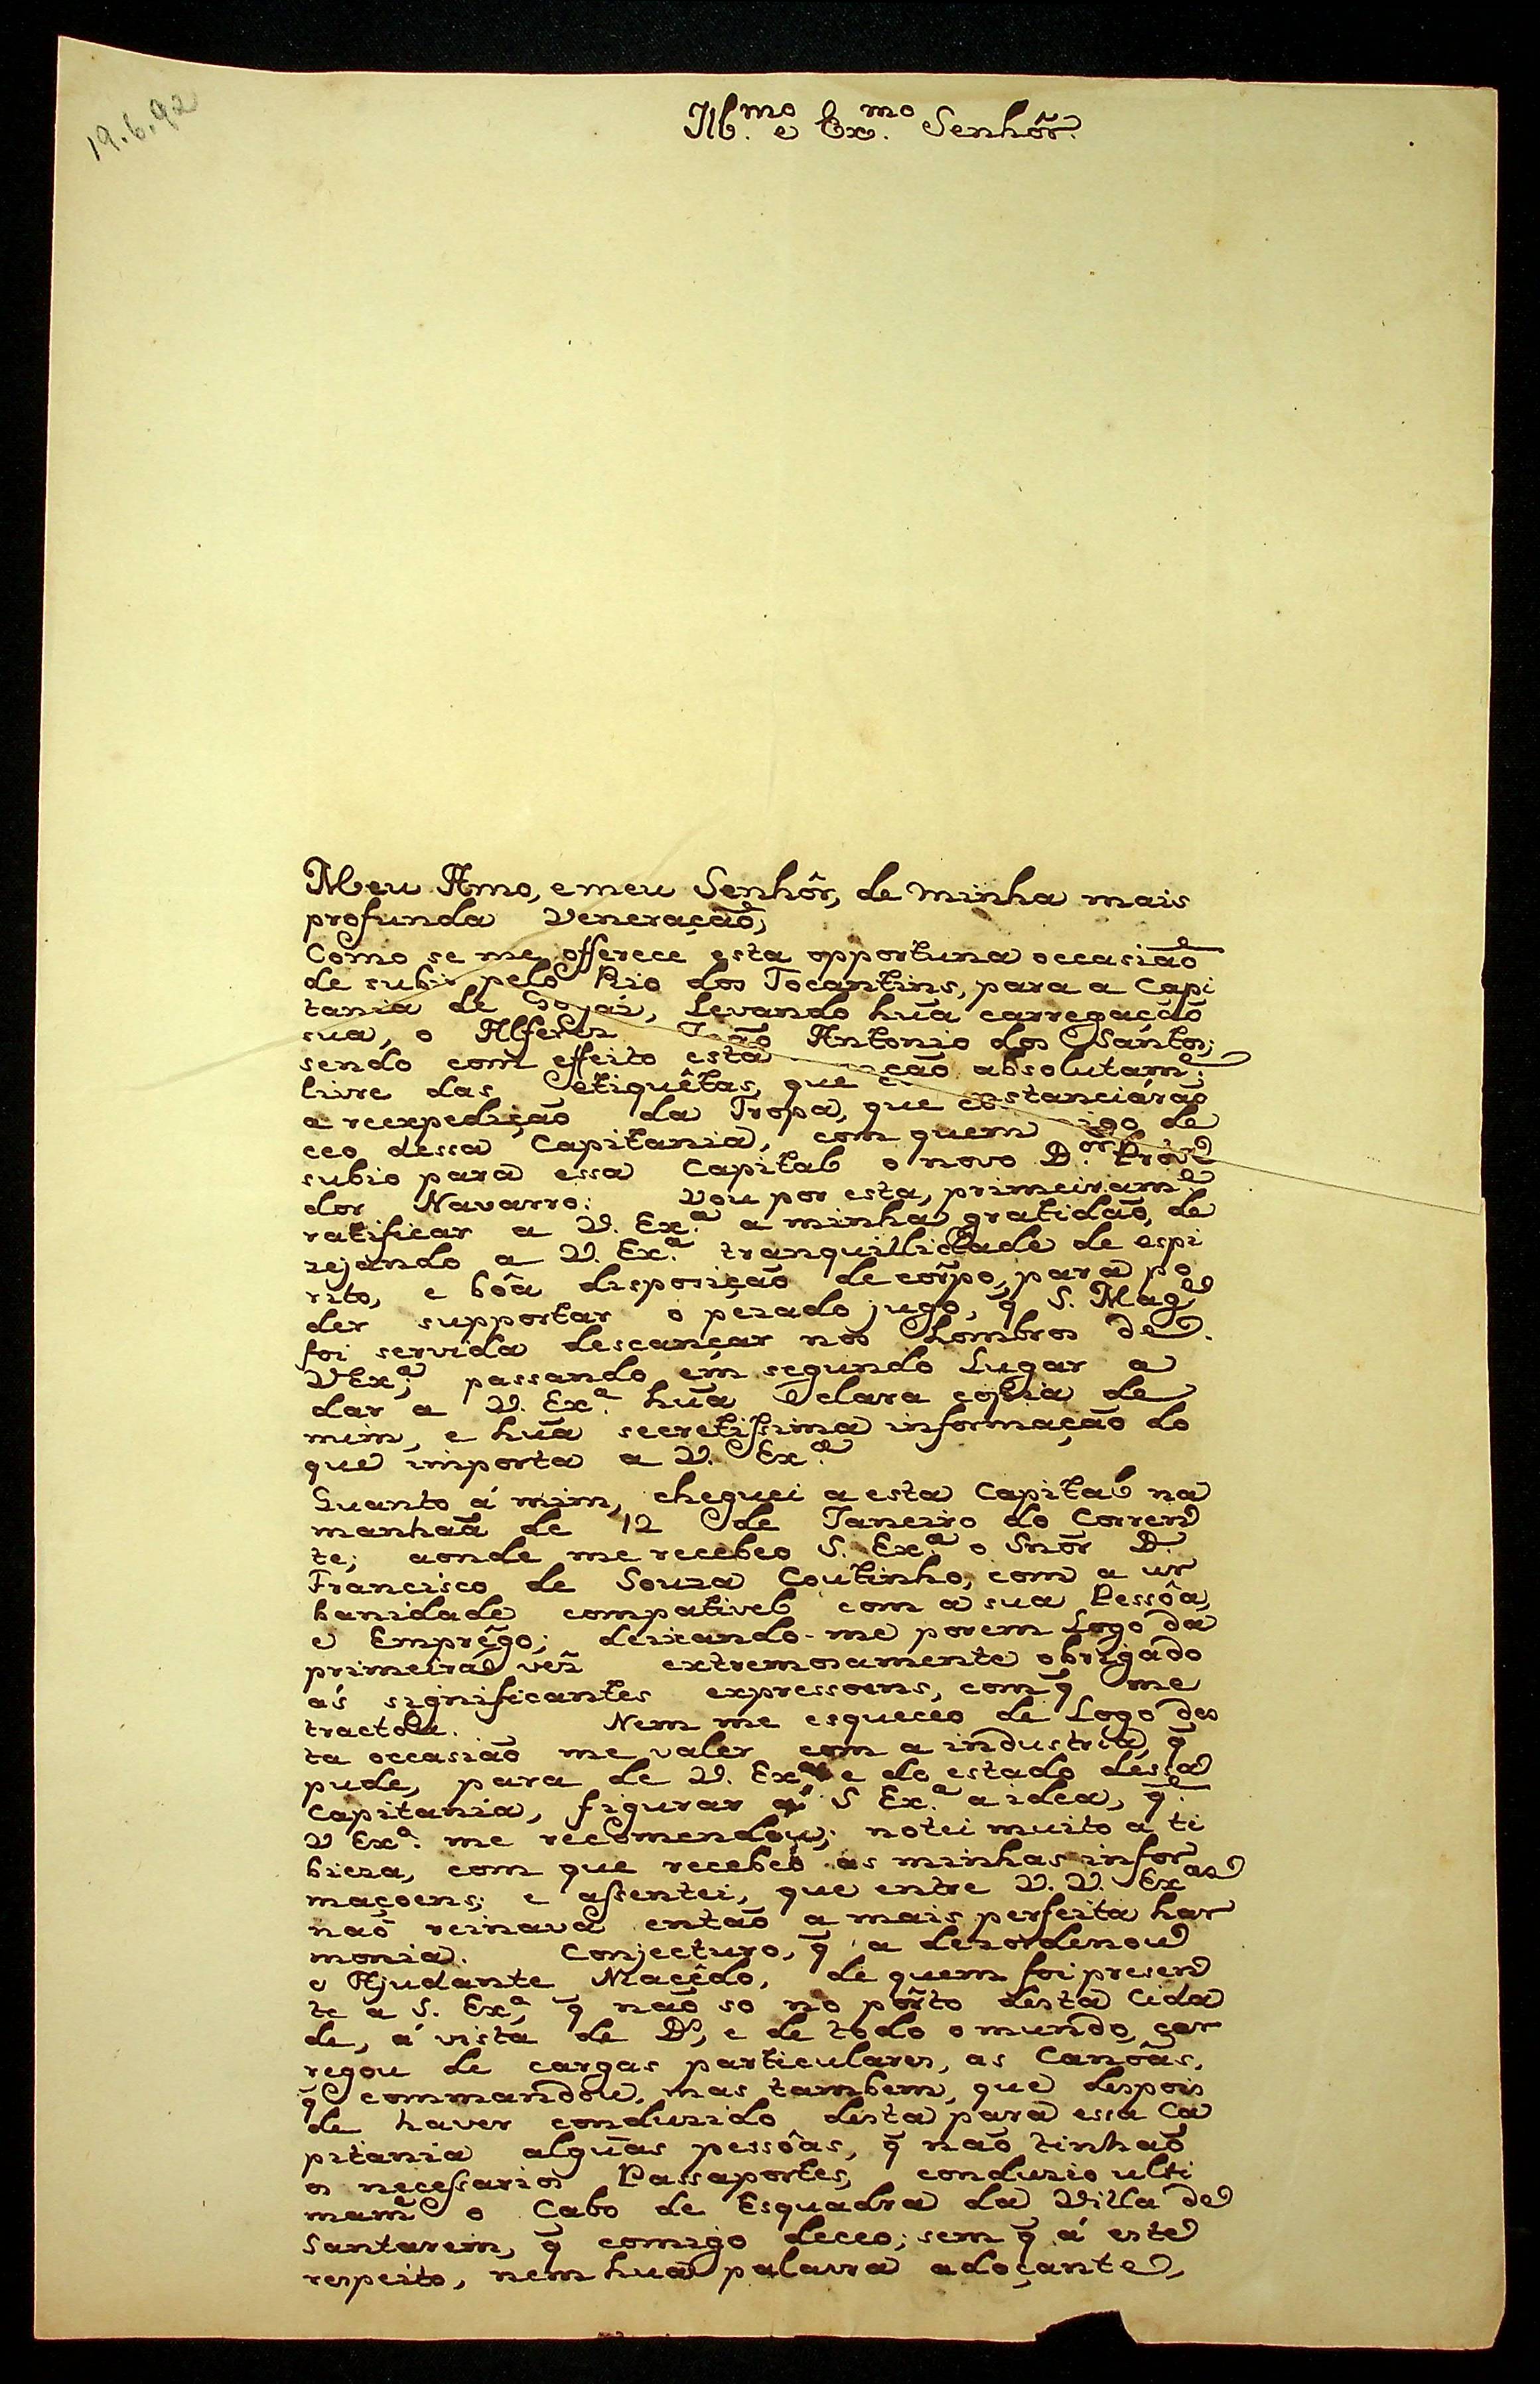 19.6.92
Ill.mo e Ex.mo Senhôr.
Meu Amo, e meu Senhôr, de minha mais
profunda Veneração,
Como se me offerece esta opportuna occasião
de subir pelo Rio dos Tocantins, para a Capi
tania de Goyáz, Levando hũa carregação
sua, o Alferes João Antonio dos Santos;
sendo com effeito esta ção absolutam.e
livre das etiquêtas, que stanciárão
a reexpedição da Tropa, que co igo de
ceo dessa Capitania, com quem
subio para essa Capital o novo D.or Prov
dor Navarro: Vou por esta, primeiram.e
ratificar a V. Ex.a a minha gratidão, de
zejando a V. Ex.a tranquillidade de espi
rito, e bôa disposição de côrpo, para po
der supportar o pezado jugo, q̃ S. Mag.e
foi servida descançar nos hombros de
VEx.a; passando em segundo Lugar a
dar a V. Ex.a hũa clara copia de
mim, e hũa secretissima informação do
que importa a V. Ex.a
Quanto á mim, cheguei a esta Capital na
manhaã de 12 de Janeiro do Corren
te; aonde me recebeo S. Ex.a o Snõr D.
Francisco de Souza Coutinho, com a ur
banidade compativel com a sua Pessôa,
e Emprêgo; deixando-me porem Logo da
primeira vez extremosamente obrigado
ás significantes expressoens, com q̃ me
tractou. Nem me esqueceo de Logo des
ta occasião me valer com a industria, q̃
pude, para de V. Ex.a e do estado dessa
Capitania, figurar á S Ex.a a idea, q̃
V Ex.a me recomendou; notei muito a ti
bieza, com que recebeo as minhas infor
maçoens; e assentei, que entre V. V. Ex.as
não reinava então a mais perfeita har
monia. Conjecturo, q̃ a dezordenou
o Ajudante Macêdo, de quem foi presen
te a S. Ex.a, q̃ não so no pôrto desta Cida
de, á vista de D.s, e de todo o mundo, car
regou de cargas particulares, as Canôas,
q̃ commandou, mas tambem, que despois
de haver conduzido desta para essa Ca
pitania algũas pessôas, q̃ não tinhão
os necessarios Passaportes, conduzio ulti
mam.e o Cabo de Esquadra da Villa de
Santarem, q̃ comigo deceo; sem q̃ á este
respeito, nem hũa palavra adoçante,